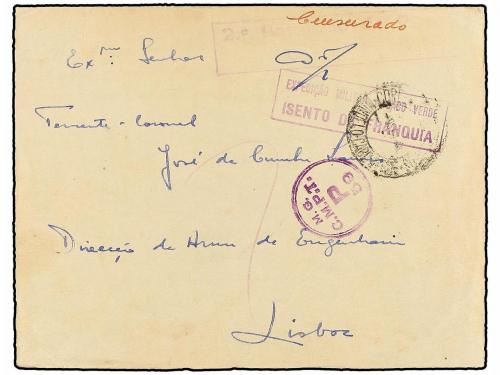 Censurado
2.º
Ex.mo Senhor
EXPEDIÇÃO MILITAR CABO VERDE
ISENTO DE FRANQUIA
Tenente-Coronel
José da Cunha
M. G.
C.M.P.T.
P
Direcção da Arma de Engenharia
Lisboa